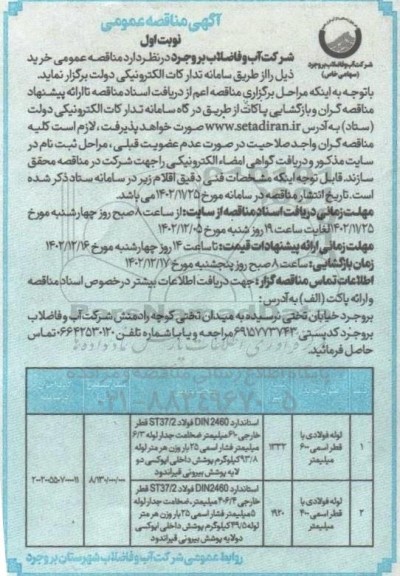 آگهی مناقصه عمومی
نوبت اول
شرکت آب و فاضلاب بروجرد
(سهامی خاص)
شرکت آب و فاضلاب بروجرد در نظر دارد مناقصه عمومی خرید
ذیل را از طریق سامانه تدارکات الکترونیکی دولت برگزار نماید.
باتوجه به اینکه مراحل برگزاری مناقصه اعم از دریافت اسناد مناقصه تا ارائه پیشنهاد
مناقصه گران و بازگشایی پاکات از طریق درگاه سامانه تدارکات الکترونیکی دولت
(ستاد) به آدرس www.setadiran.ir صورت خواهد پذیرفت، لازم است کلیه
مناقصه گران واجد صلاحیت در صورت عدم عضویت قبلی، مراحل ثبت نام در
سایت مذکور و دریافت گواهی امضاء الکترونیکی را جهت شرکت در مناقصه محقق
سازند. قابل توجه اینکه مشخصات فنی دقیق اقلام زیر در سامانه ستاد ذکر شده
است. تاریخ انتشار مناقصه در سامانه مورخ ۱۴۰۲/۱۱/۲۵ می باشد.
مهلت زمانی دریافت اسناد مناقصه از سایت: از ساعت ۸ صبح روز چهارشنبه مورخ
۱۴۰۲/۱۱/۲۵ لغایت ساعت ۱۹ روز شنبه مورخ ۱۴۰۲/۱۲/۰۵
مهلت زمانی ارائه پیشنهادات قیمت: تا ساعت ۱۴ روز چهارشنبه مورخ ۱۴۰۲/۱۲/۱۶
زمان بازگشایی: ساعت ۸ صبح روز پنجشنبه مورخ ۱۴۰۲/۱۲/۱۷
اطلاعات تماس مناقصه گزار: جهت دریافت اطلاعات بیشتر در خصوص اسناد مناقصه
و ارائه پاکت (الف) به آدرس:
بروجرد خیابان تختی نرسیده به میدان تختی کوچه رادمنش شرکت آب و فاضلاب
بروجرد کدپستی ۶۹۱۵۷۷۳۷۴۳ مراجعه و یا با شماره تلفن ۰۶۶۴۲۵۳۰۱۲۰ تماس
حاصل فرمائید.
۱ لوله فولادی با قطر اسمی ۶۰۰ میلیمتر ۱۳۳۲
استاندارد DIN 2460 فولاد ST37/2 قطر
خارجی ۶۱۰ میلیمتر ضخامت جدار لوله ۶/۳
میلیمتر فشار اسمی ۲۵ بار وزن هر متر لوله
۹۳/۸ کیلوگرم پوشش داخلی اپوکسی دو
لایه پوشش بیرونی قیراندود
۲ لوله فولادی با قطر اسمی ۴۰۰ میلیمتر ۱۹۲۰
استاندارد DIN2460 فولاد ST37/2 قطر
خارجی ۴۰۶/۴ میلیمتر، ضخامت جدار لوله
۵ میلیمتر فشار اسمی ۲۵ بار وزن هر متر
لوله ۴۹/۵ کیلوگرم پوشش داخلی اپوکسی
دولایه پوشش بیرونی قیراندود
روابط عمومی شرکت آب و فاضلاب شهرستان بروجرد